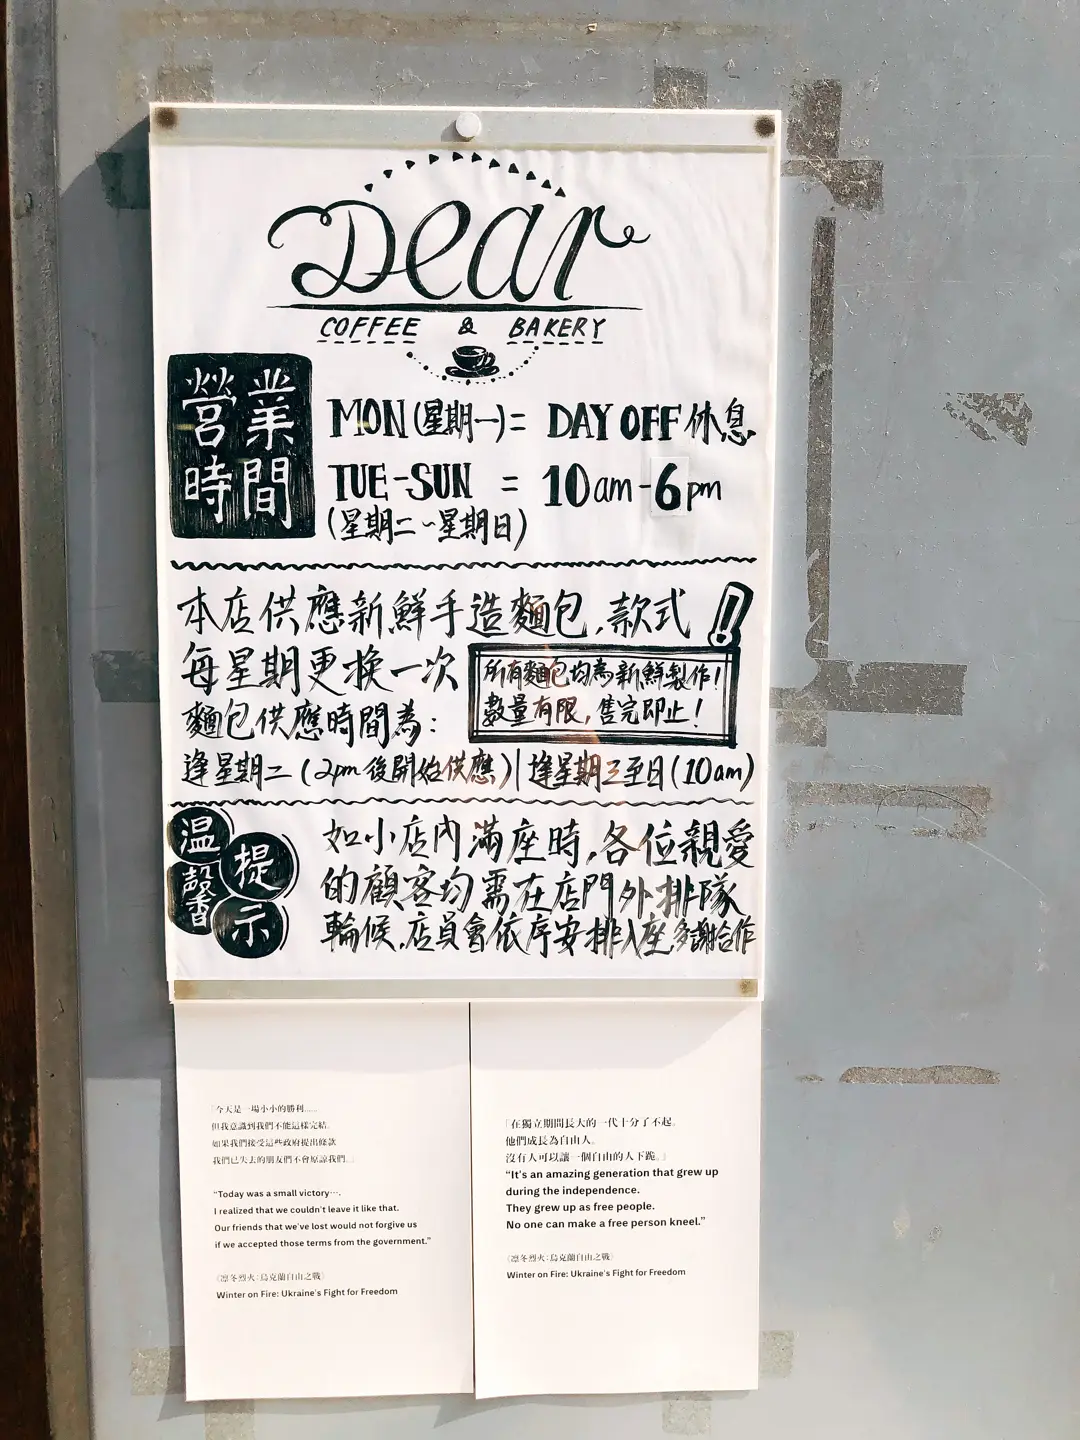 Dear
COFFEE & BAKERY
營業
時間
MON (星期一) = DAY OFF 休息
TUE-SUN = 10am-6pm
(星期二~星期日)
本店供應新鮮手造麵包,款式
每星期更換一次
麵包供應時間為:
!
所有麵包均為新鮮製作!
數量有限,售完即止!
逢星期二 (2pm後開始供應) | 逢星期三至日 (10am)
溫馨
提示
如小店內滿座時,各位親愛
的顧客均需在店門外排隊
輪候,店員會依序安排入座 多謝合作
「今天是一場小小的勝利......
但我意識到我們不能這樣完結。
如果我們接受這些政府提出條款
我們已失去的朋友們不會原諒我們。」
“Today was a small victory···.
I realized that we couldn't leave it like that.
Our friends that we've lost would not forgive us
if we accepted those terms from the government.”
《凜冬烈火:烏克蘭自由之戰》
Winter on Fire: Ukraine's Fight for Freedom
「在獨立期間長大的一代十分了不起。
他們成長為自由人。
沒有人可以讓一個自由的人下跪。」
“It's an amazing generation that grew up
during the independence.
They grew up as free people.
No one can make a free person kneel.”
《凜冬烈火:烏克蘭自由之戰》
Winter on Fire: Ukraine's Fight for Freedom